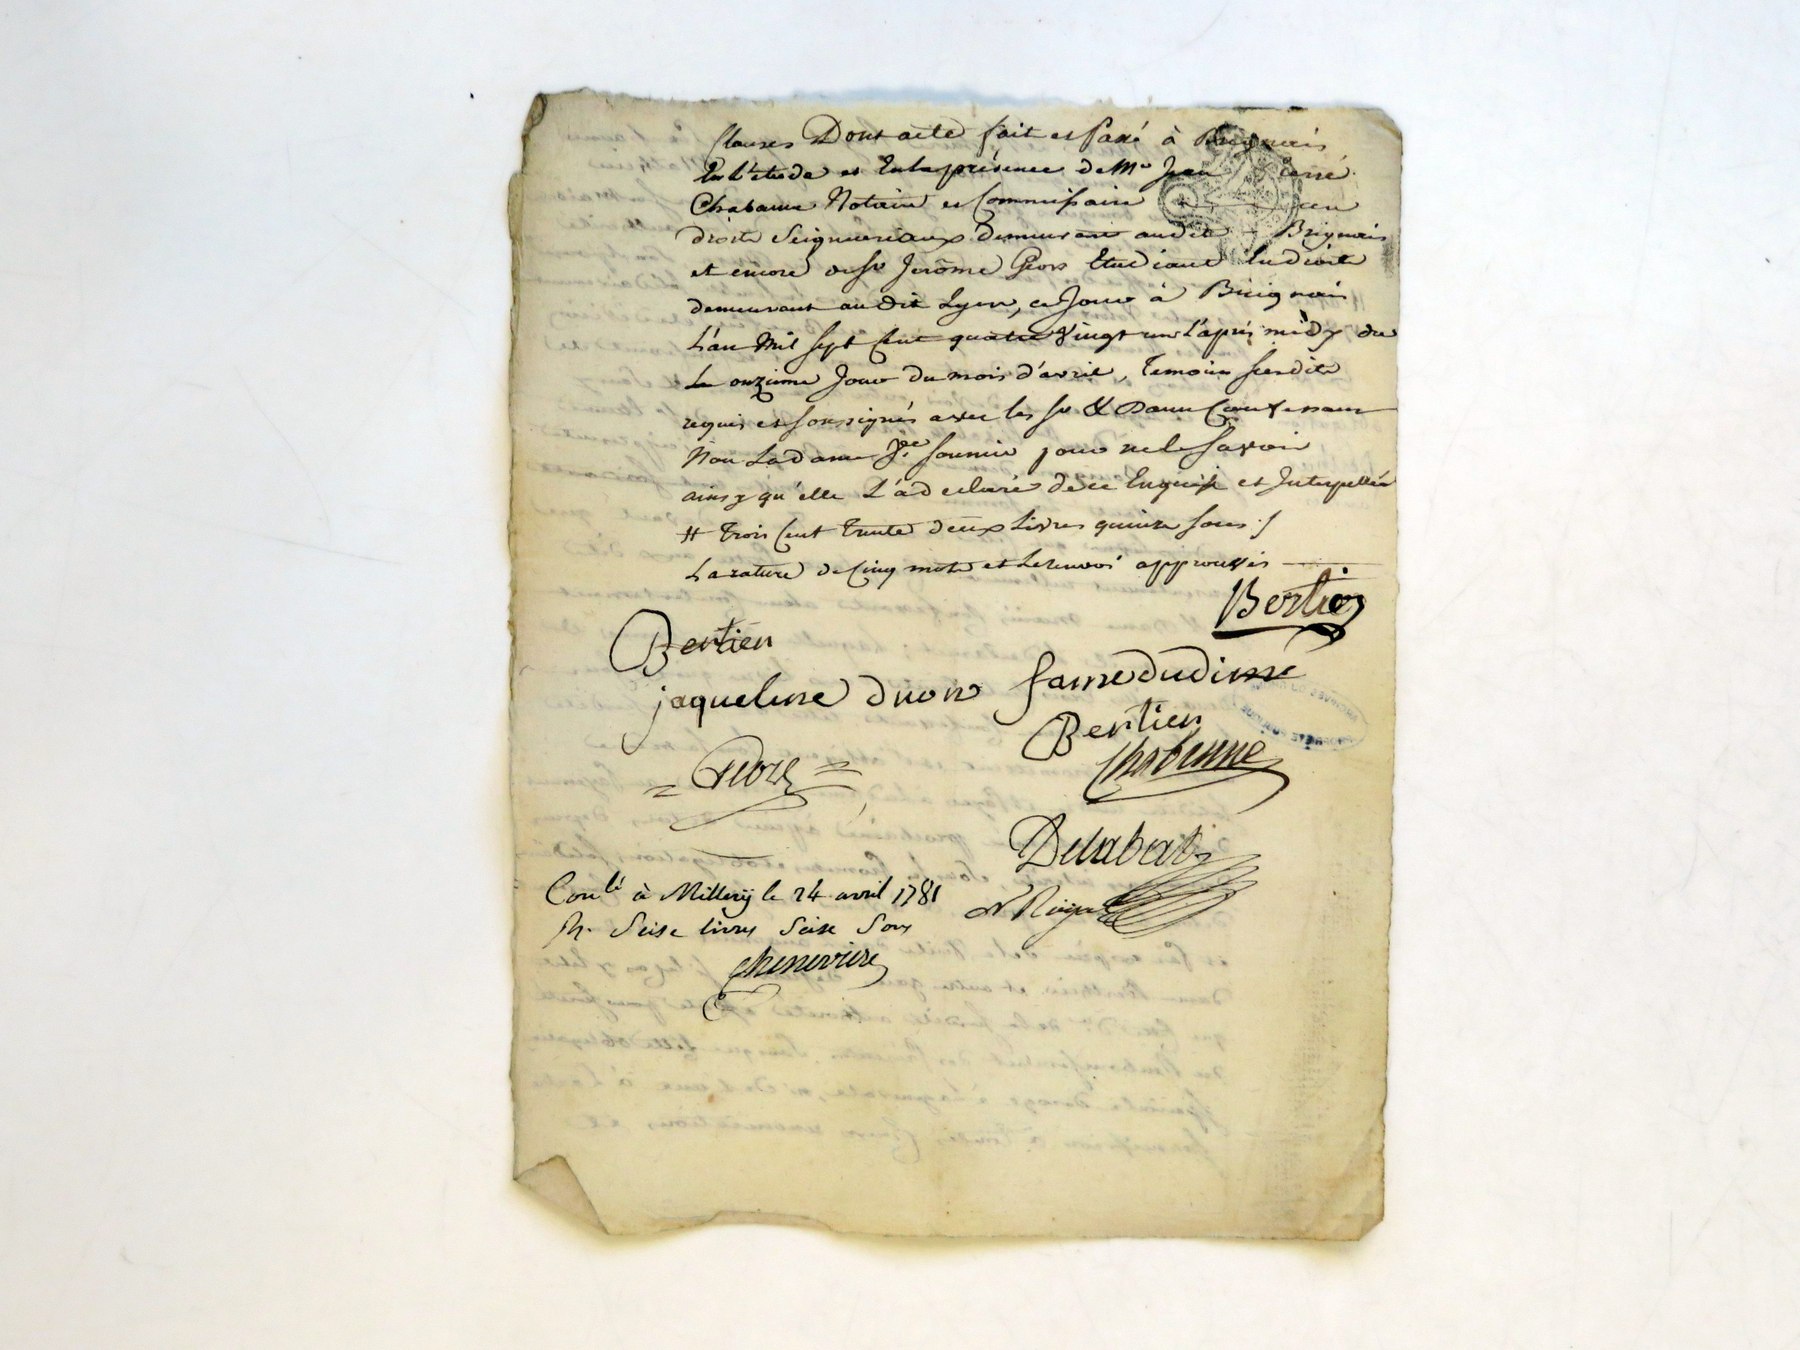 Clauses Dont acte fait et passé à Brignais
En l'etude et En la présence de Me Jean Pierre
Chabanne Notaire et Commissaire en
droits Seigneuriaux demeurant audit Brignais
et encore de sr Jerôme Geors Etudiant En droits
demeurant au dit Lyon, ce Jour à Brignais
L'an Mil sept Cent quatre Vingt un L'après midy du
Le onzieme Jour du mois d'avril, Temoins susdits
requis et soussignés avec les sr & Dame
Non La dame pour ne le savoir
ainsy qu'elle L'à déclaré de ce Enquise et Interpellée
# Trois Cent Trente deux Livres quinze sous ./
La rature de Cinq mots et Le renvoi approuvés
Bertien
Bertien
jaqueline druon fame dudi
Bertien
Chabanne
Geors
Delabert
Conlé à Millery le 24 avril 1781
R. Seise livres Seise Sous
Chenevière